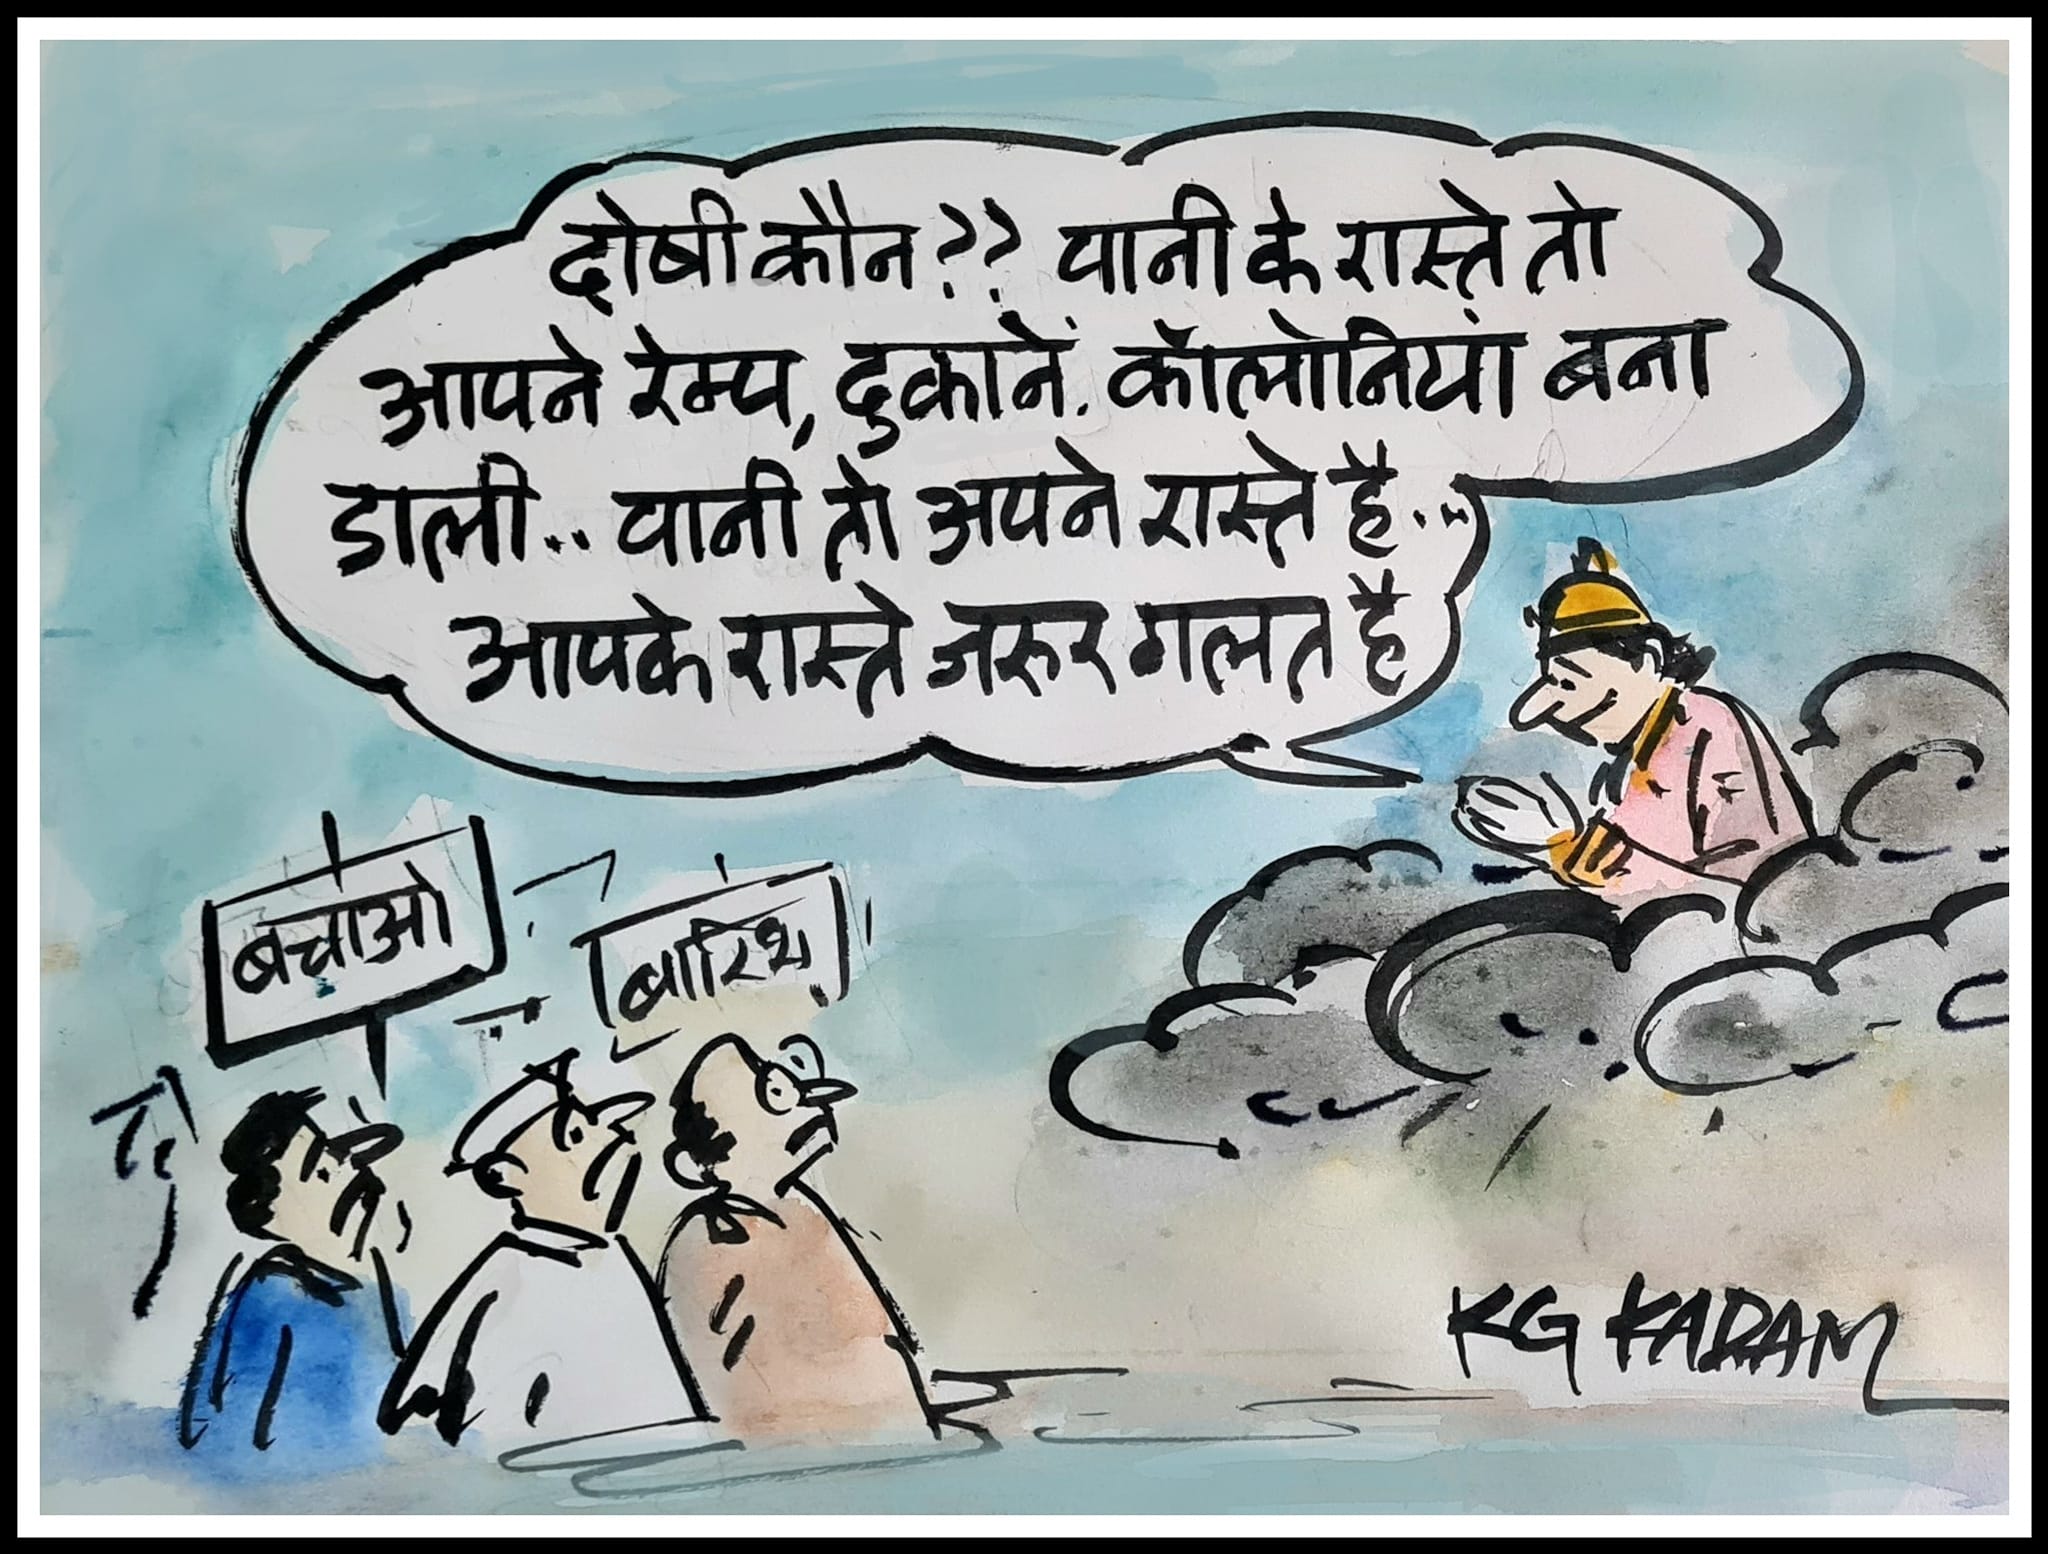 दोषी कौन?? पानी के रास्ते तो
आपने रेम्प, दुकानें. कॉलोनियां बना
डाली.. पानी तो अपने रास्ते है...
आपके रास्ते जरुर गलत है
बचाओ
बारिश
KG KADAM